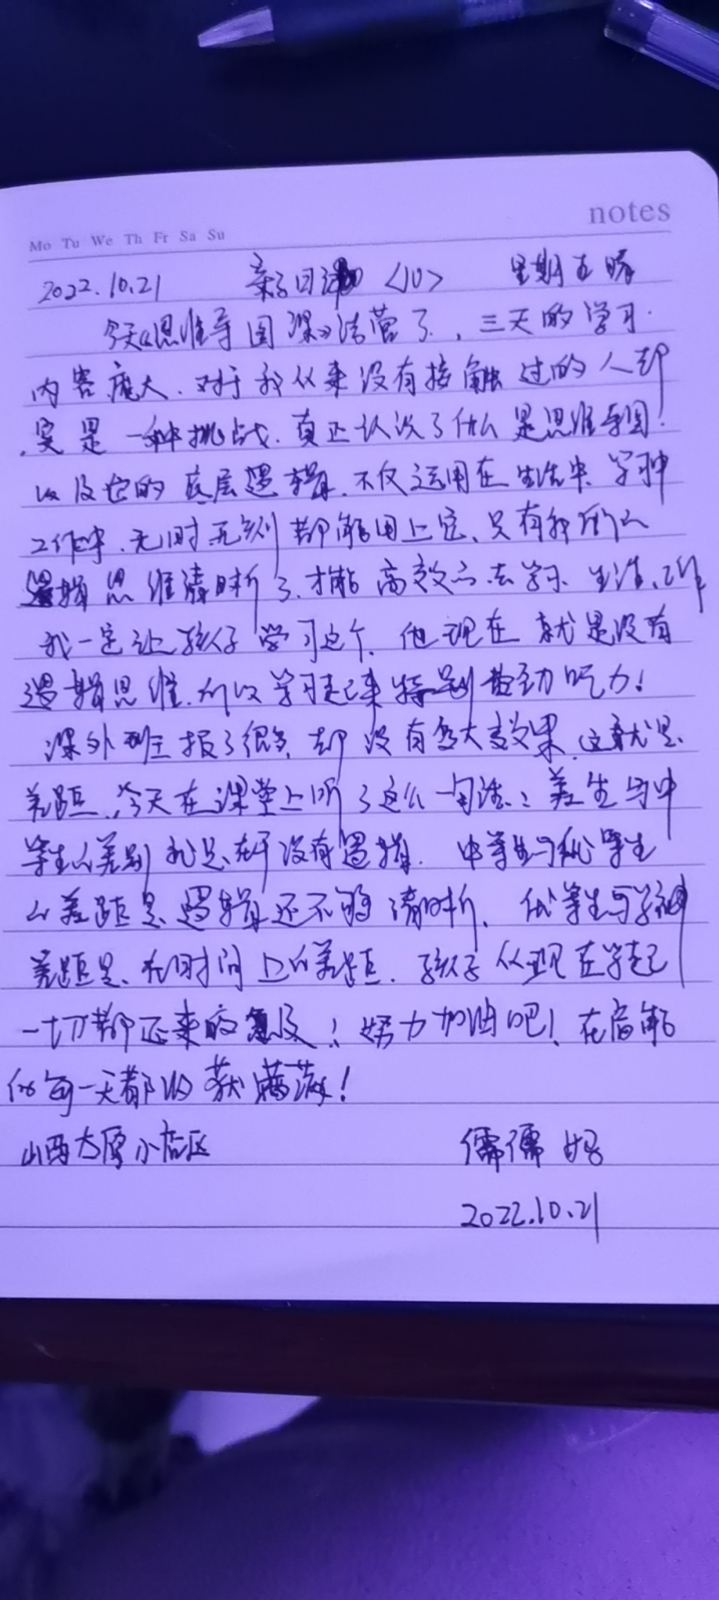 notes
Mo Tu We Th Fr Sa Su
2022.10.21 亲子日记 <10> 星期五 晴
今天《思维导图课》结营了,三天的学习
内容庞大.对于我从来没有接触过的人却
实是一种挑战.真正认识了什么是思维导图!
以及它的底层逻辑.不仅运用在生活中、学习中
工作中.无时无刻都能用上它、只有我们的
逻辑思维清晰了.才能高效的去学习.生活、工作
我一定让孩子学习这个.他现在就是没有
逻辑思维.所以学习起来特别费劲吃力!
课外班报了很多,却没有多大效果.这就是
差距.今天在课堂上听了这么一句话:差生与中
等生的差别就是在于没有逻辑.中等生与优等生
的差距是逻辑还不够清晰.优等生与学神
差距是.在时间上的差距.孩子从现在学起
一切都还来的急及!努力加油吧!在启能
的每一天都收获满满!
山西太原小店区 儒儒妈
2022.10.21